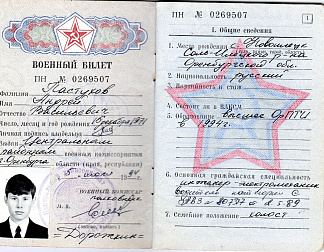 ВОЕННЫЙ БИЛЕТ
ПН № 0269507
Фамилия Пастухов
Имя Андрей
Отчество Васильевич
Число, месяц и год рождения 1971
Личная подпись владельца
Выдан Центральным
районным военным комиссариатом
г. Оренбурга
(края, области, республики)
94
ВОЕННЫЙ КОМИССАР
подполковник
ПН № 0269507
1
I. Общие сведения
1. Место рождения с. Новоилецк
Соль-Илецкого р-на
Оренбургской обл
2. Национальность русский
3. Партийность и стаж
4. Состоит ли в ВЛКСМ
5. Образование высшее ОрПТИ
в 1994г.
6. Основная гражданская специальность
инженер-электромеханик
7. Семейное положение холост